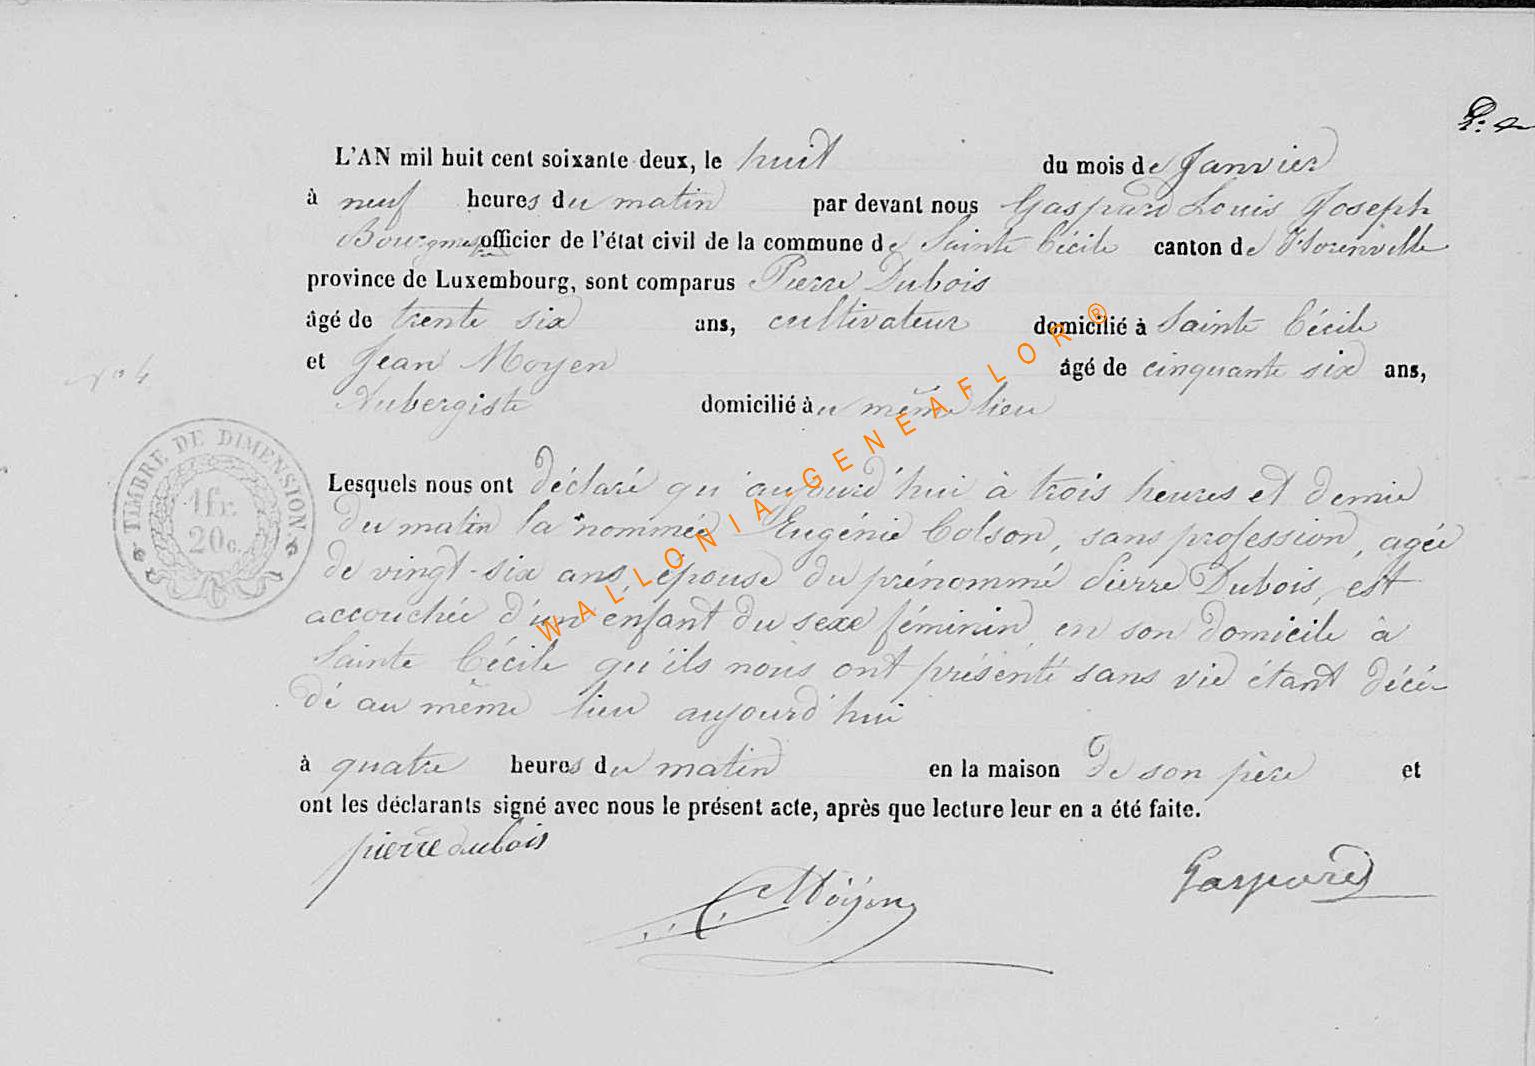 L'AN mil huit cent soixante deux, le huit du mois de Janvier
à neuf heures du matin par devant nous Gaspard Louis Joseph
Bourgmestre officier de l'état civil de la commune de Sainte Cécile canton de Florenville
province de Luxembourg, sont comparus Pierre Dubois
âgé de trente six ans, cultivateur domicilié à Sainte Cécile
et Jean Moyen âgé de cinquante six ans,
Aubergiste domicilié au même lieu
N° 4
TIMBRE DE DIMENSION
1 fr.
20 c.
Lesquels nous ont déclaré qu'aujourd'hui à trois heures et demie
du matin la nommée Eugénie Colson, sans profession, agée
de vingt-six ans, épouse du prénommé Pierre Dubois, est
accouchée d'un enfant du sexe féminin en son domicile à
Sainte Cécile qu'ils nous ont présenté sans vie étant décé-
dé au même lieu aujourd'hui
à quatre heures du matin en la maison de son père et
ont les déclarants signé avec nous le présent acte, après que lecture leur en a été faite.
pierre dubois
Moÿen
Gaspard
WALLONIA-GENEAFLOR®